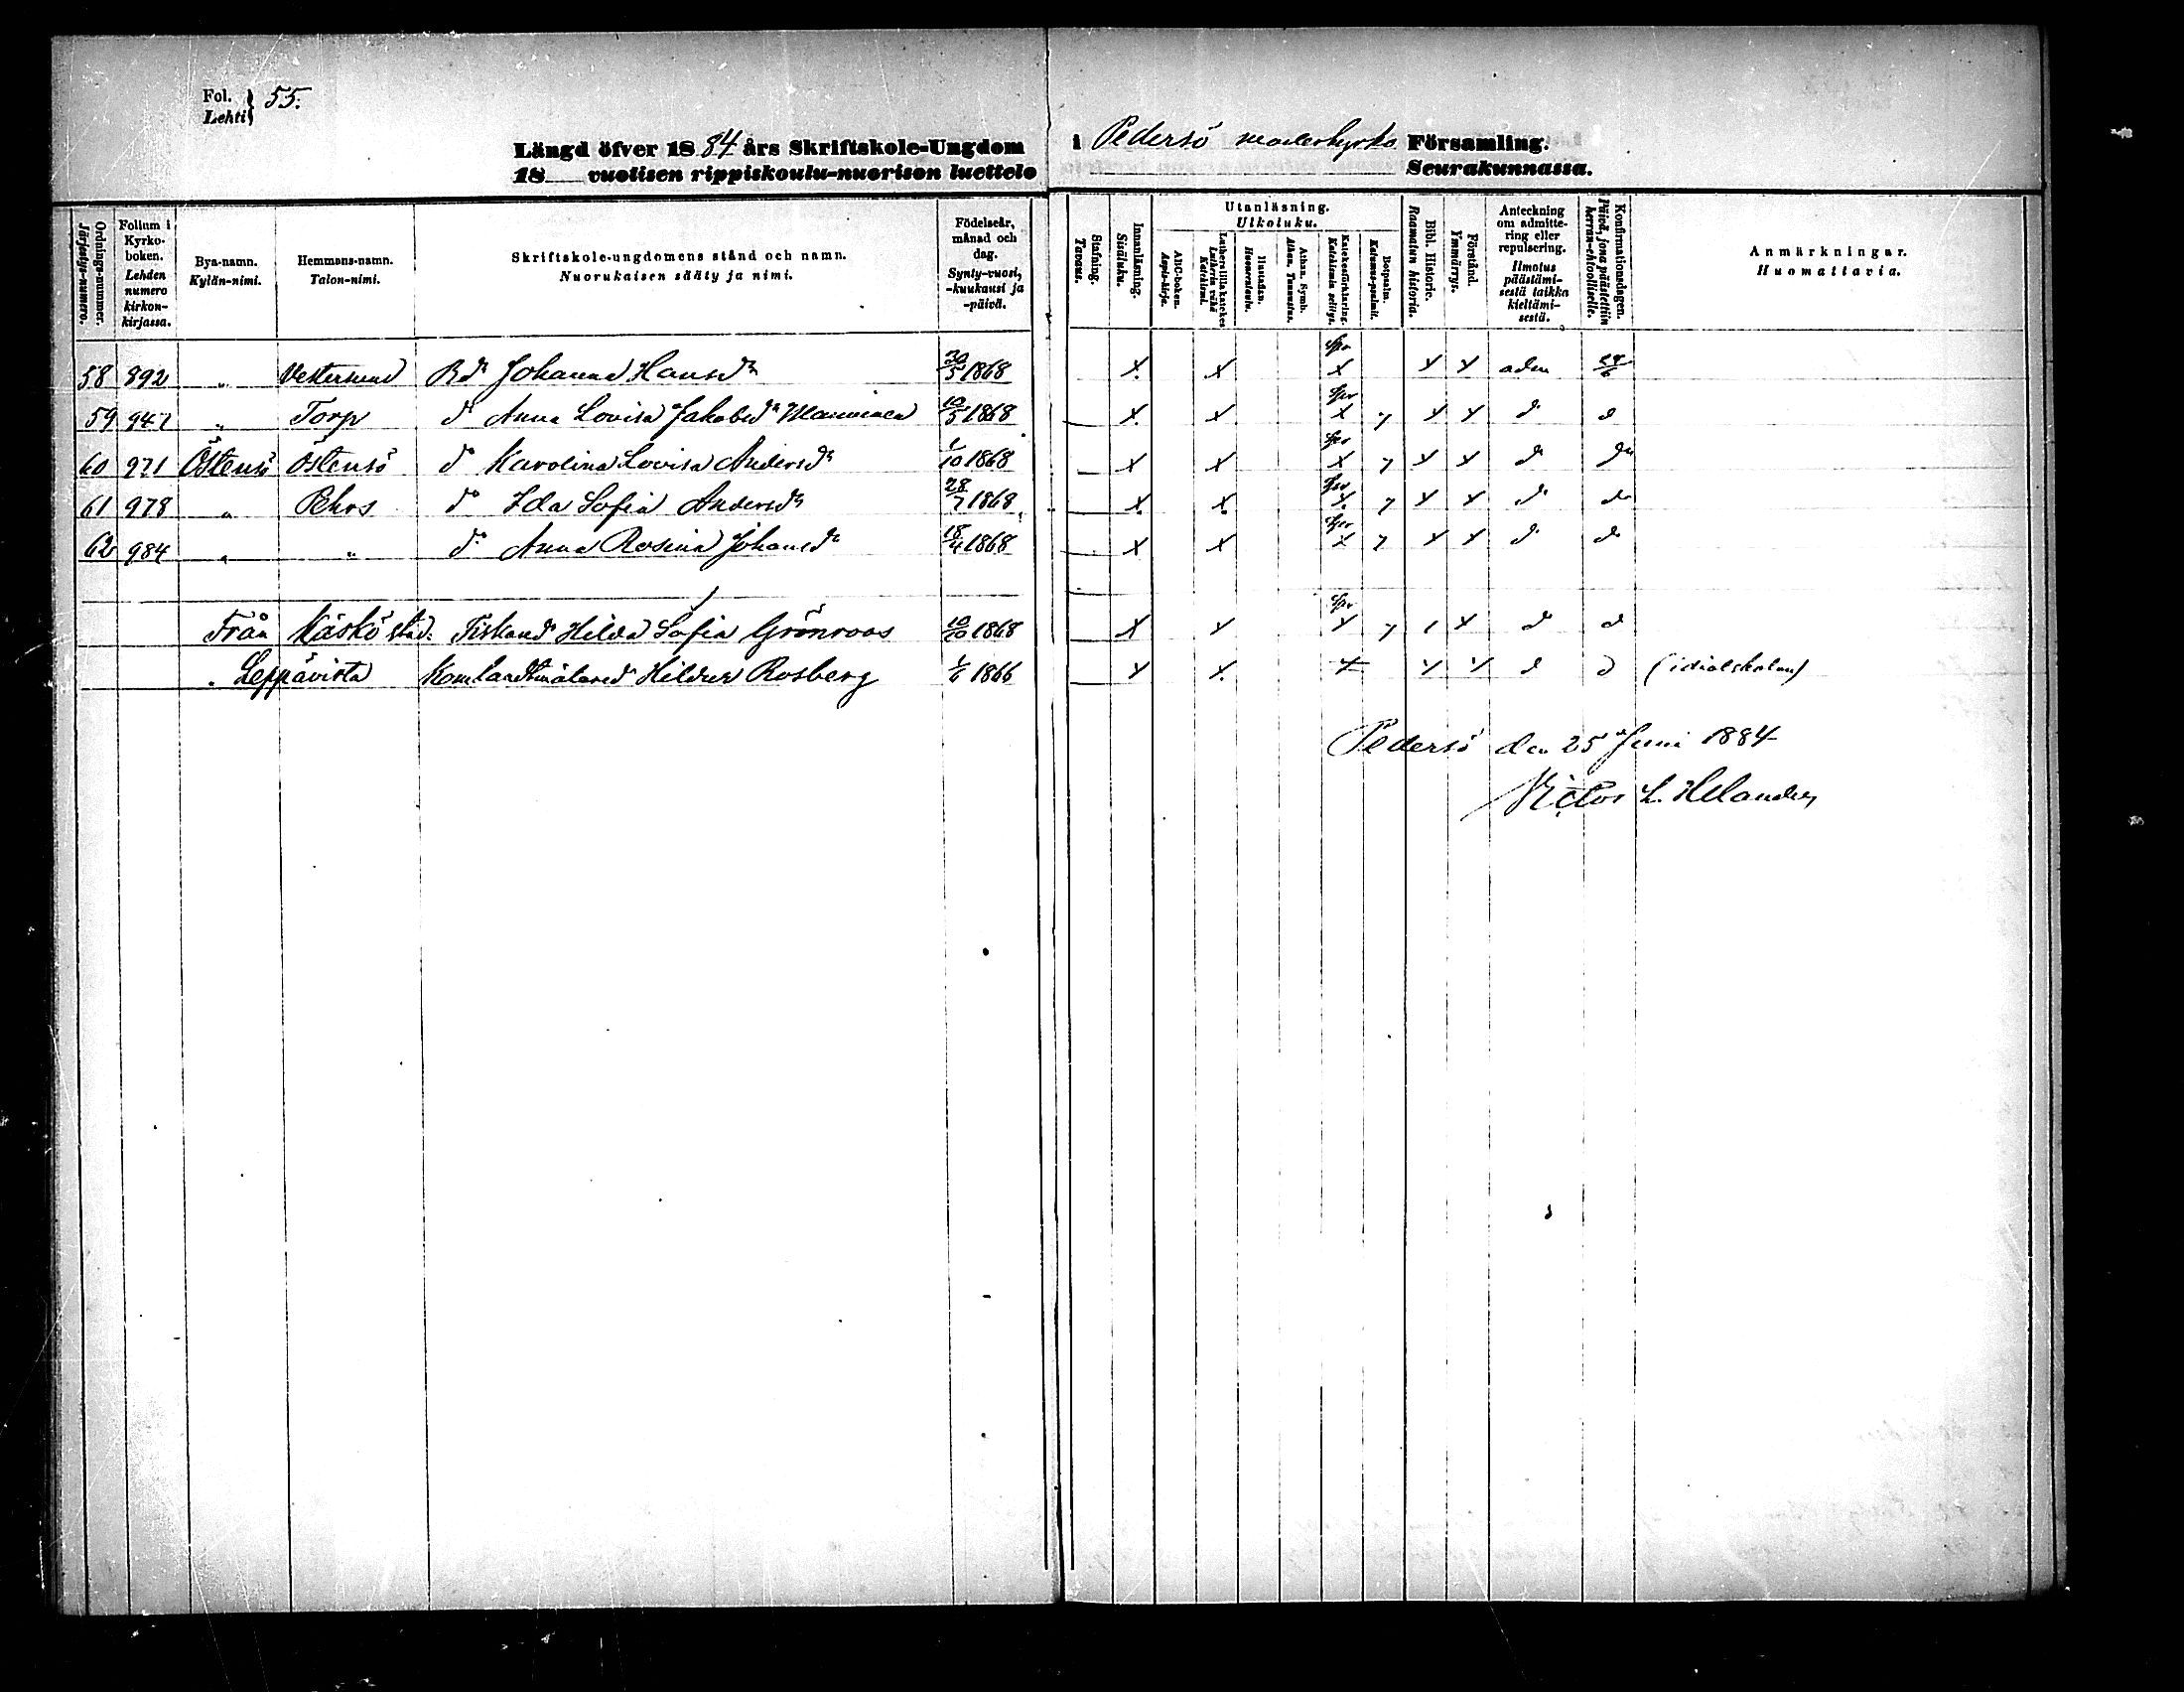 Fol. } 55.
Lehti
Längd öfver 1884 års Skriftskole-Ungdom i Pedersö moderkyrko Församling.
18 vuotisen rippiskoulu-nuorison luettelo Seurakunnassa.
Ordnings-nummer. Järjestys-numero.
Folium i Kyrko-boken. Lehden numero kirkon-kirjassa.
Bya-namn. Kylän-nimi.
Hemmans-namn. Talon-nimi.
Skriftskole-ungdomens stånd och namn. Nuorukaisen sääty ja nimi.
Födelseår, månad och dag. Synty-vuosi, -kuukausi ja -päivä.
Stafning. Tavaus.
Innanläsning. Sisäluku.
Utanläsning. Ulkoluku.
ABC-boken. Aapis-kirja.
Lutheri lilla katekes Lutherin vähä Katekismi.
Hustaflan. Huoneentaulu.
Athan. Symb. Athan. Tunnustus.
Katekesförklaring. Katekismin selitys.
Botpsalm. Katumus-psalmit.
Bibl. Historie. Raamatun historia.
Förstånd. Ymmärrys.
Anteckning om admittering eller repulsering. Ilmotus päästämisestä taikka kieltämisestä.
Konfirmationsdagen. Päivä, jona päästettiin herran-ehtoolliselle.
Anmärkningar. Huomattavia.
58 892 " Vestersund Bdr Johanna Hansdr 30/5 1868 x x Spr x x x adm 24/6
59 947 " Torp do Anna Lovisa Jakobsdr Manninen 10/5 1868 x x Spr x 7 x x do do
60 971 Östensö Östensö do Karolina Lovisa Andersdr 1/10 1868 x x Spr x 7 x x do do
61 978 " Pehrs do Ida Sofia Andersdr 28/7 1868 x x Spr x 7 x x do do
62 984 " " do Anna Rosina Johansdr 18/4 1868 x x Spr x 7 x x do do
Från Kaskö stad. Hilda Sofia Grönroos 10/10 1868 x x Spr x 7 x x do do
" Leppävirta Komlandtmätared Hildur Rosberg 1/6 1866 x x x x x do do (idiotskolan)
Pedersö den 25 Juni 1884
Victor L. Helander